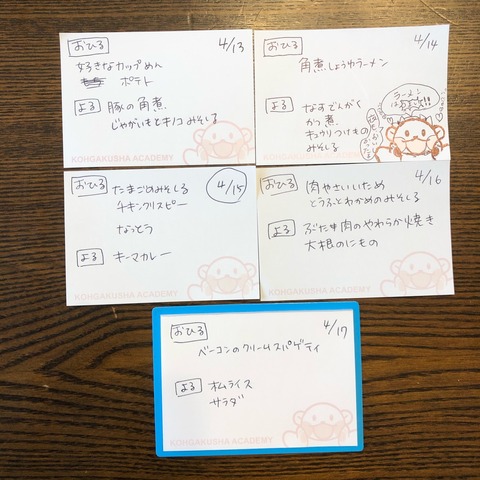 おひる 4/13
好きなカップめん
ポテト
よる 豚の角煮
じゃがいもとキノコみそしる
KOHGAKUSHA ACADEMY
おひる 4/14
角煮しょうゆラーメン
よる なすでんがく
かつ煮
キュウリつけもの
みそしる
ラーメン
おひる 4/15
たまごのみそしる
チキンクリスピー
なっとう
よる キーマカレー
KOHGAKUSHA ACADEMY
おひる 4/16
肉やさいいため
とうふとわかめのみそしる
よる ぶた肉のやわらか焼き
大根のにもの
おひる 4/17
ベーコンのクリームスパゲティ
よる オムライス
サラダ
KOHGAKUSHA ACADEMY